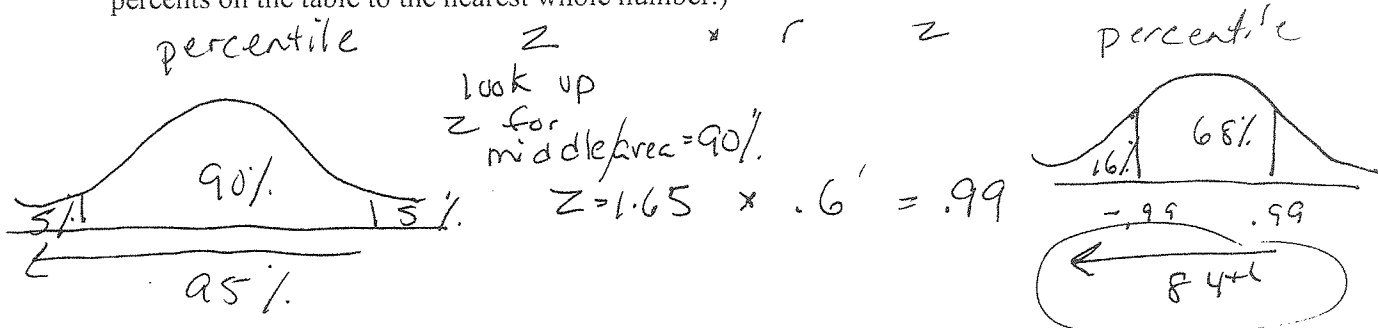 percents on the table to the nearest whole number.)
percentile z * r z percentile
look up
z for
middle/area=90%.
90% 5% 5% 95%
z=1.65 * .6 = .99
16% 68%
-.99 .99
84th